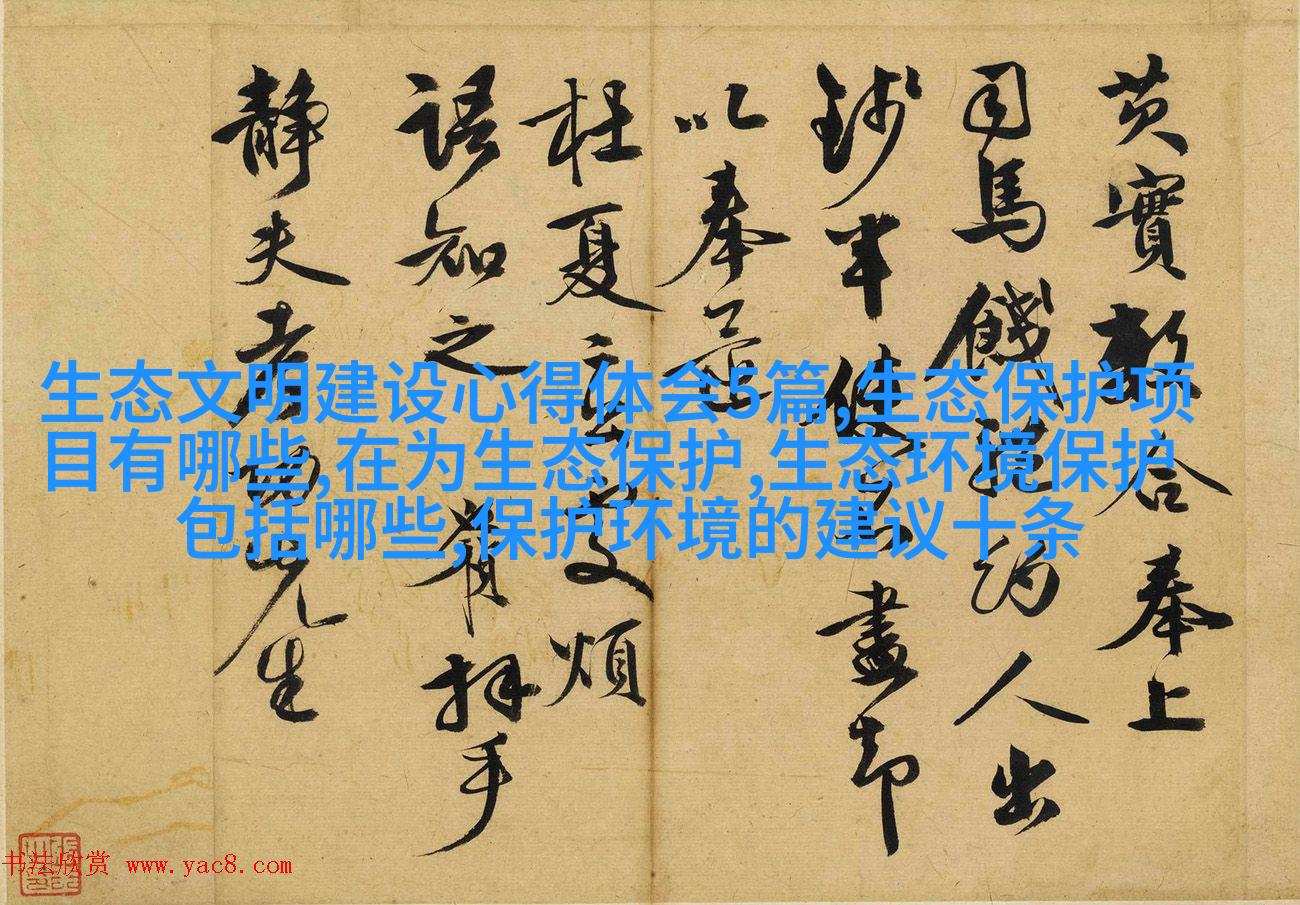 生态文明建设心得体会5篇,生态保护项
目有哪些,在为生态保护,生态环境保护
包括哪些,保护环境的建议十条
芡實數合奉上
司馬 人出
半 盡却
以奉
杜夏 煩
語知之 拜手
靜夫 先生
书法欣赏 www.yac8.com